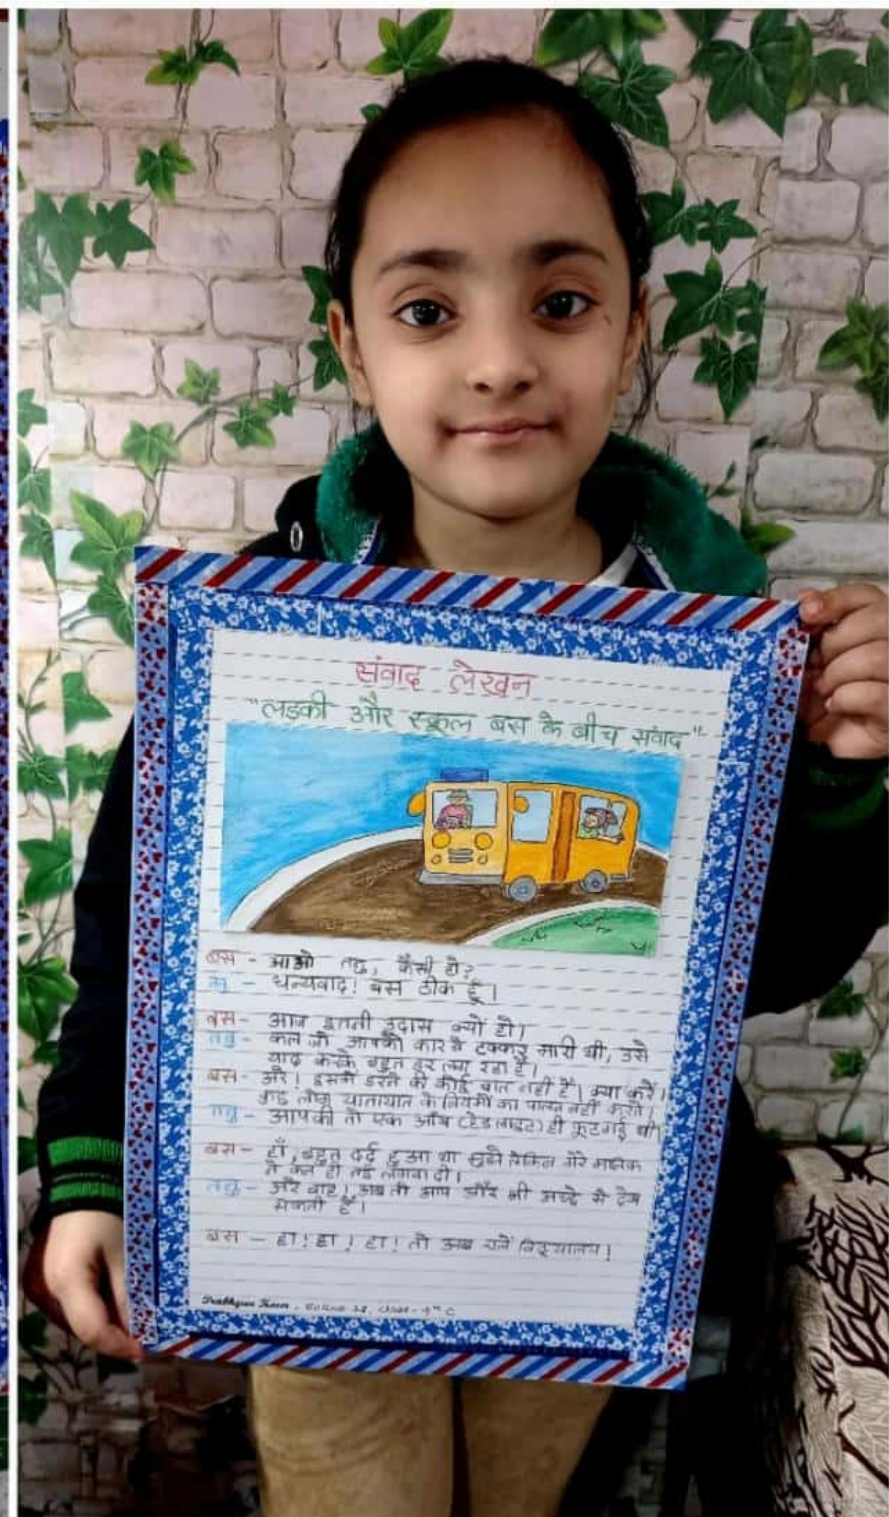 संवाद लेखन
"लडकी और स्कूल बस के बीच संवाद"
बस - आओ तनु, कैसी हो?
तनु - धन्यवाद! बस ठीक हूँ।
बस - आज इतनी उदास क्यों हो।
तनु - कल जो आपको कार ने टक्कर मारी थी, उसे
याद करके बहुत डर लग रहा है।
बस - अरे! इसमें डरने की कोई बात नहीं है। क्या करें।
कुछ लोग यातायात के नियमों का पालन नहीं करते।
तनु - आपकी तो एक आँख (हेडलाइट) ही फूट गई थी।
बस - हाँ, बहुत दर्द हुआ था मुझे लेकिन मेरे मालिक
ने कल ही नई लगवा दी।
तनु - अरे वाह! अब तो आप और भी अच्छे से देख
सकती हैं।
बस - हा! हा! हा! तो अब चलें विद्यालय!
Kaur, Rollno 28, class - 4th C